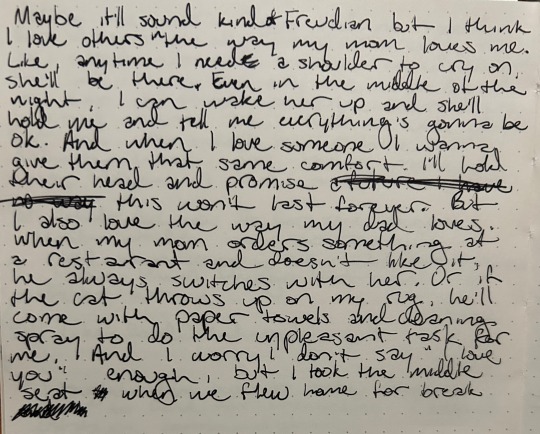 Maybe it'll sound kind of Freudian but I think
I love others in the way my mom loves me.
Like, anytime I need a shoulder to cry on,
she'll be there. Even in the middle of the
night, I can wake her up and she'll
hold me and tell me everything's gonna be
ok. And when I love someone I wanna
give them that same comfort. I'll hold
their head and promise a future I have
no way this won't last forever. But
I also love the way my dad loves.
When my mom orders something at
a restaurant and doesn't like it,
he always switches with her. Or if
the cat throws up on my rug, he'll
come with paper towels and cleaning
spray to do the unpleasant task for
me. And I worry I don't say "love
you" enough, but I took the middle
seat when we flew home for break